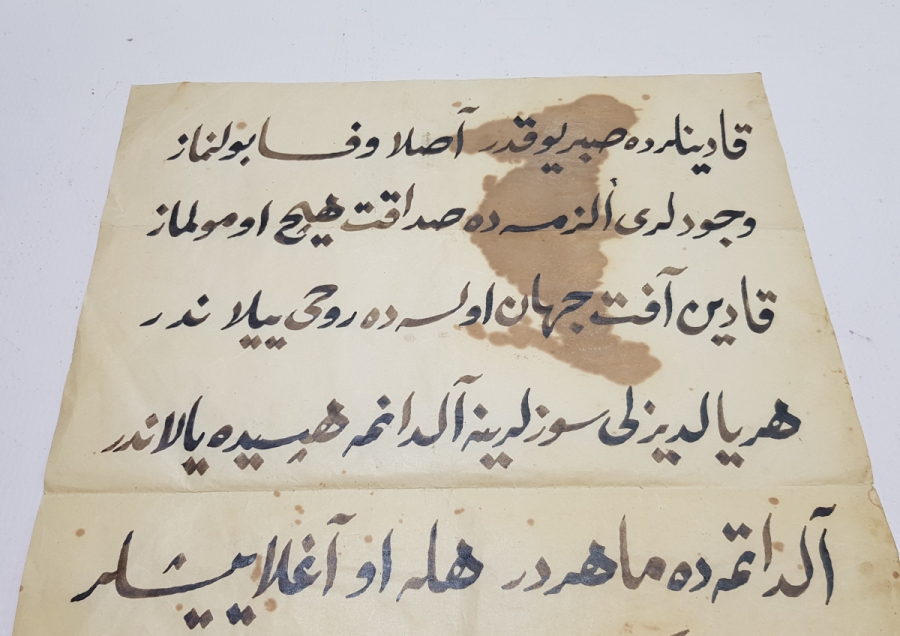 قادینلرده صبر یوقدر آصلا وفا بولنماز
وجودلری ألزمسه ده صداقت هیچ اومولماز
قادین آفت جهان اولسه ده روحی ییلاندر
هر یالدیزلی سوزلرینه آلدانمه هپسیده یالاندر
آلداتمه ده ماهردر هله او آغلاییشلر